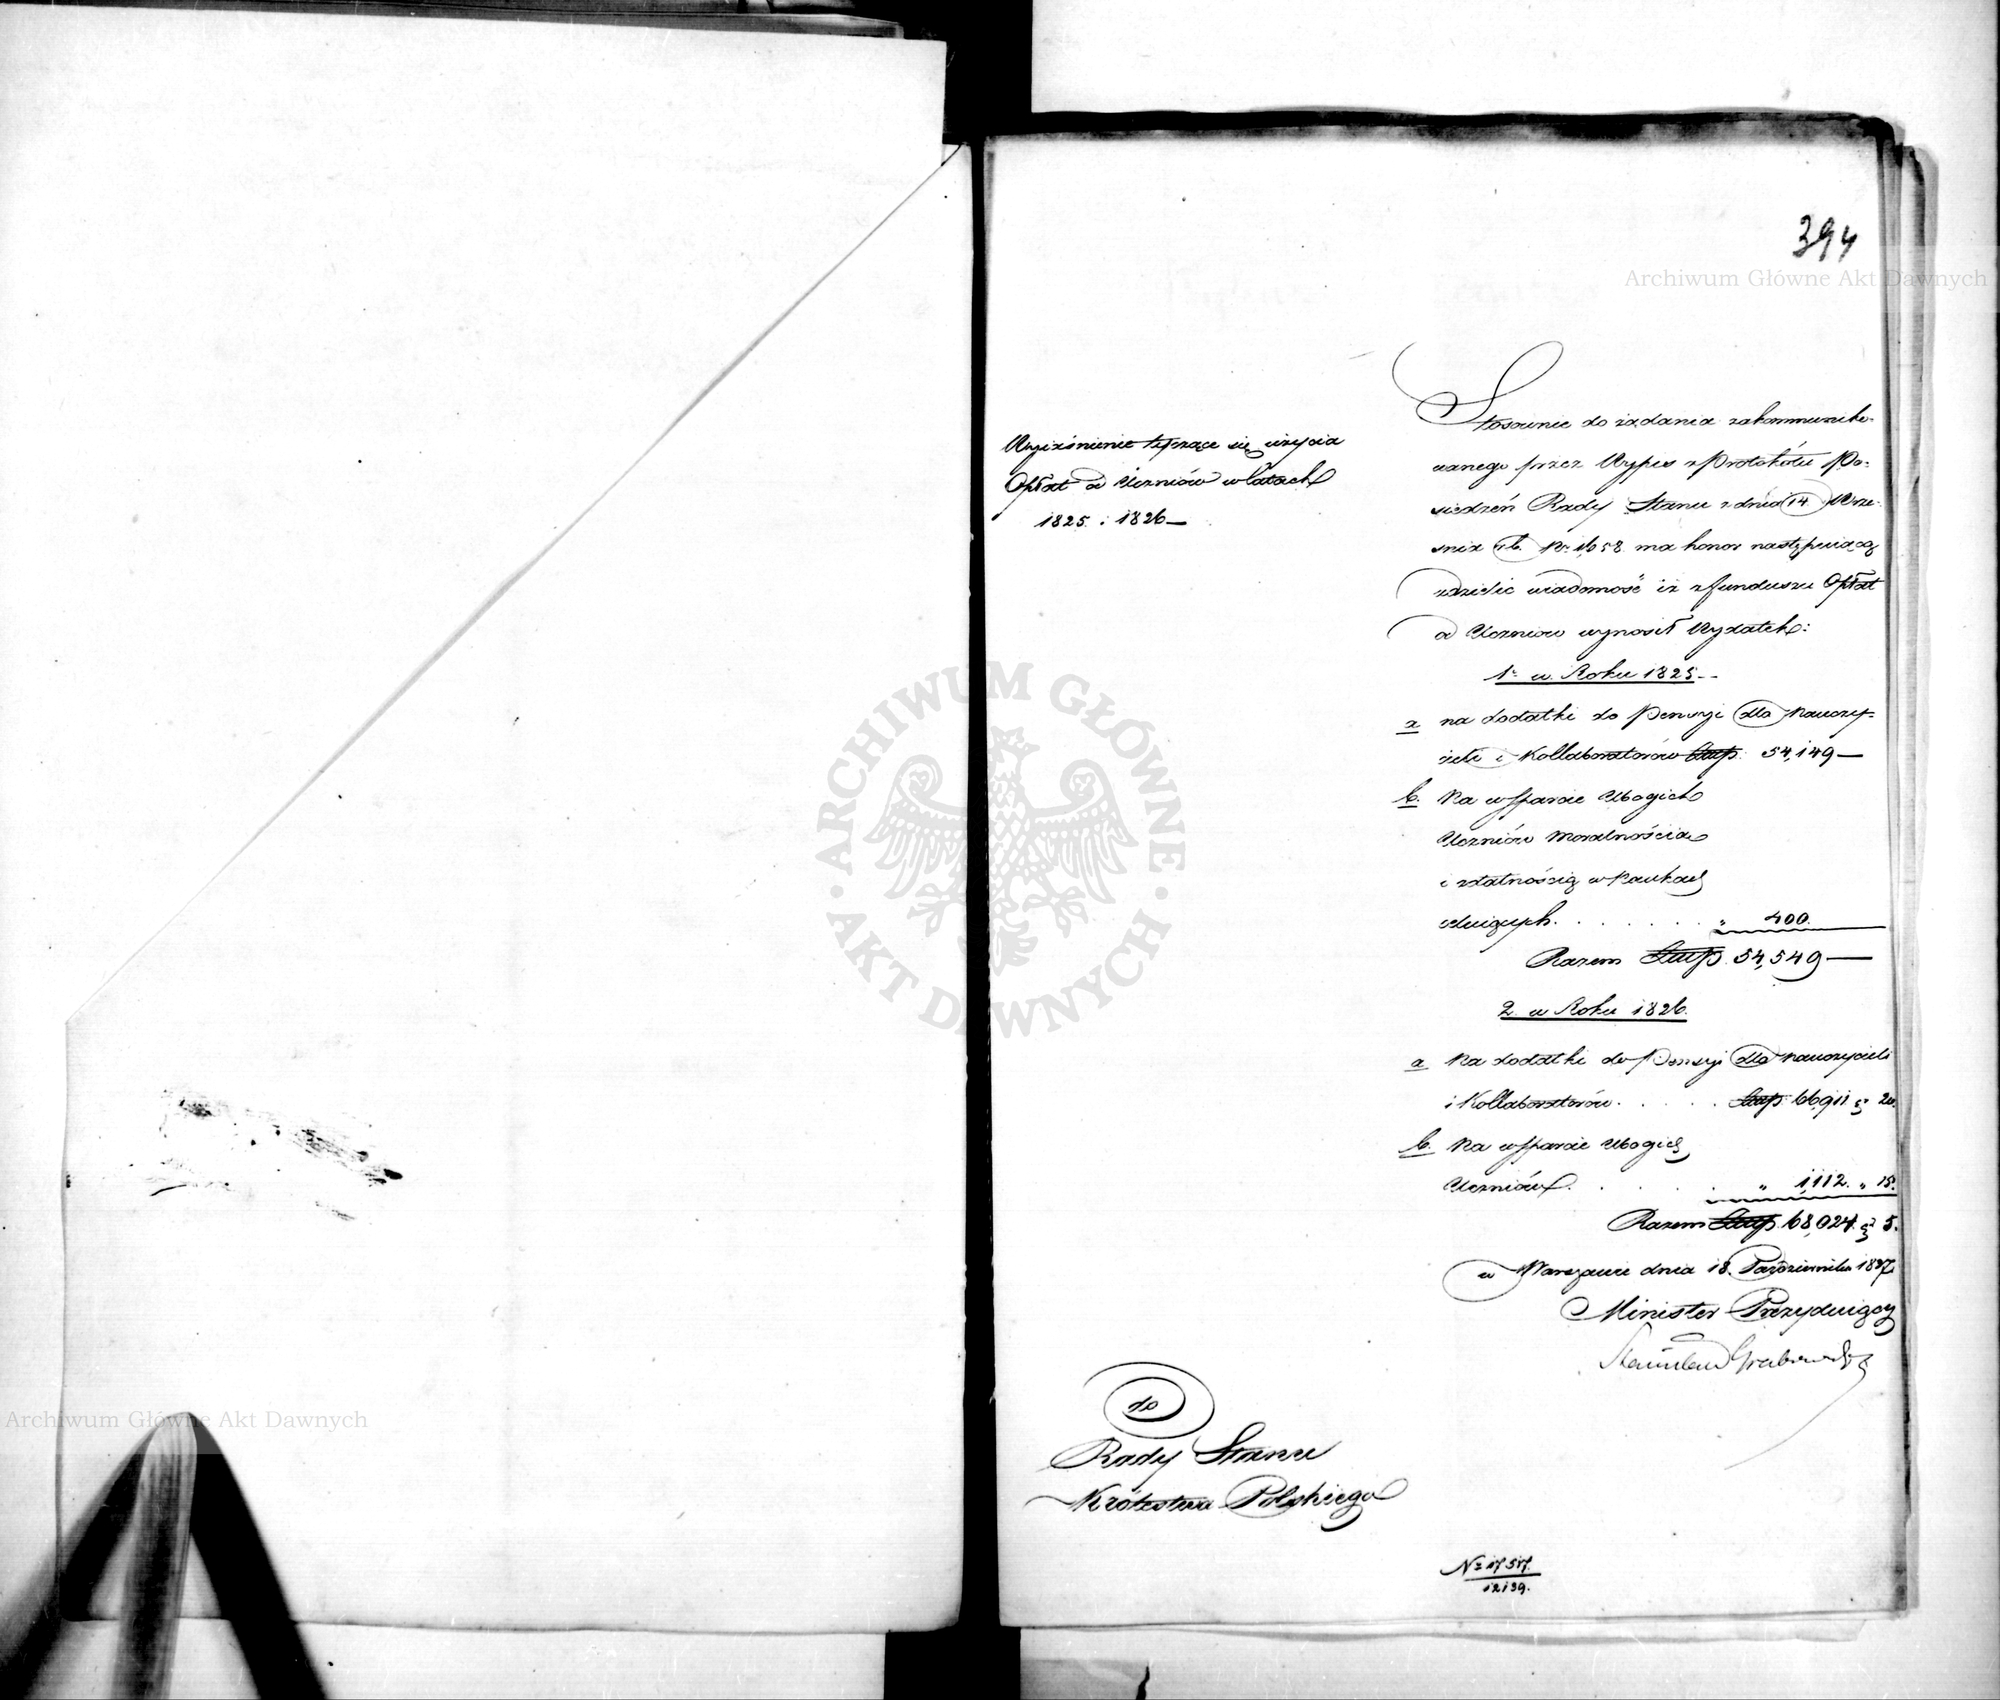 394
Archiwum Główne Akt Dawnych
Wyjaśnienie tyczące się użycia
Opłat od Uczniów w latach
1825. i 1826 —
Stosownie do żądania zakommuniko-
wanego przez Wypis z Protokółu Po-
siedzeń Rady Stanu z dnia 14 Wrze-
śnia r. b. Nr 1,058 ma honor następuiącą
udzielić wiadomość iż z funduszu Opłat
od Uczniów wynosił Wydatek:
1o w Roku 1825 —
a na dodatki do Pensyi dla Nauczy-
cieli i Kollaboratorów Złp. 54,149 —
b. Na wsparcie Ubogich
Uczniów moralnością
i zdatnością w Naukach
celuiących . . . . . . . „ 400.
Razem Złp. 54,549 —
2. w Roku 1826.
a Na dodatki do Pensyi dla Nauczycieli
i Kollaboratorów . . . . . Złp. 66,911 gr 20.
b. Na wsparcie Ubogich
Uczniów . . . . „ 1,112. „ 15.
Razem Złp. 68,024. gr 5.
w Warszawie dnia 18. Października 1827
Minister Prezyduiący
Stanisław Grabowski
do
Rady Stanu
Królestwa Polskiego
No 17517.
12139.
ARCHIWUM GŁÓWNE
AKT DAWNYCH
Archiwum Główne Akt Dawnych